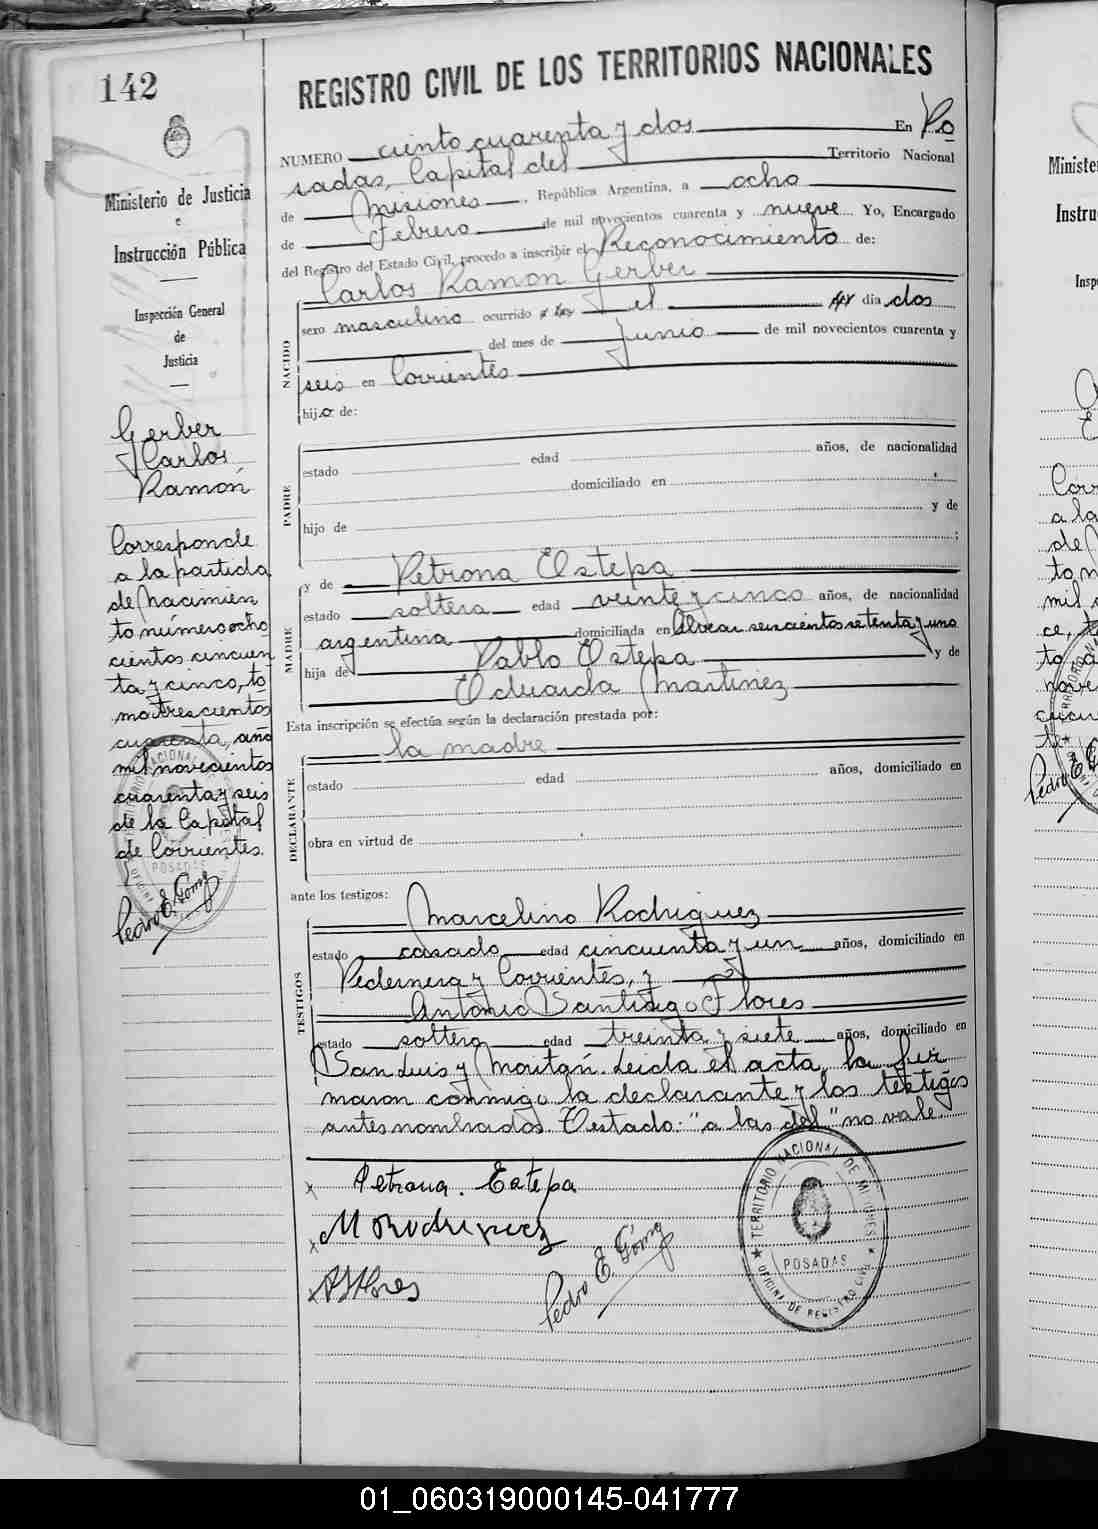 142
Ministerio de Justicia
e
Instrucción Pública
Inspección General
de
Justicia
Gerber
Carlos
Ramón
Corresponde
a la partida
de Nacimien
to número ocho
cientos cincuen
ta y cinco, to
mo trescientos
cuarenta, año
mil novecientos
cuarenta y seis
de la Capital
de Corrientes.
Pedro E. Gómez
REGISTRO CIVIL DE LOS TERRITORIOS NACIONALES
NUMERO ciento cuarenta y dos En Po
sadas, Capital del Territorio Nacional
de Misiones, República Argentina, a ocho
de Febrero de mil novecientos cuarenta y nueve Yo, Encargado
del Registro del Estado Civil, procedo a inscribir el Reconocimiento de:
Carlos Ramon Gerber
NACIDO
sexo masculino ocurrido a las el del día dos
del mes de Junio de mil novecientos cuarenta y
seis en Corrientes
hijo de:
PADRE
estado edad años, de nacionalidad
domiciliado en
hijo de y de
;
MADRE
y de Petrona Estepa
estado soltera edad veinte y cinco años, de nacionalidad
argentina domiciliada en Alvear seiscientos setenta y uno
hija de Pablo Estepa y de
Eduarda Martinez
Esta inscripción se efectúa según la declaración prestada por:
la madre
DECLARANTE
estado edad años, domiciliado en
obra en virtud de
ante los testigos:
TESTIGOS
Marcelino Rodriguez
estado casado edad cincuenta y un años, domiciliado en
Pedernera y Corrientes, y
Antonio Santiago Flores
estado soltero edad treinta y siete años, domiciliado en
San Luis y Moritán. Leida el acta, la fir
maron conmigo la declarante y los testigos
antes nombrados. Testado: "a las del" no vale.
x Petrona. Estepa
x M Rodriguez
x ASFlores
Pedro E. Gómez
TERRITORIO NACIONAL DE MISIONES
POSADAS
OFICINA DE REGISTRO CIVIL
01_060319000145-041777